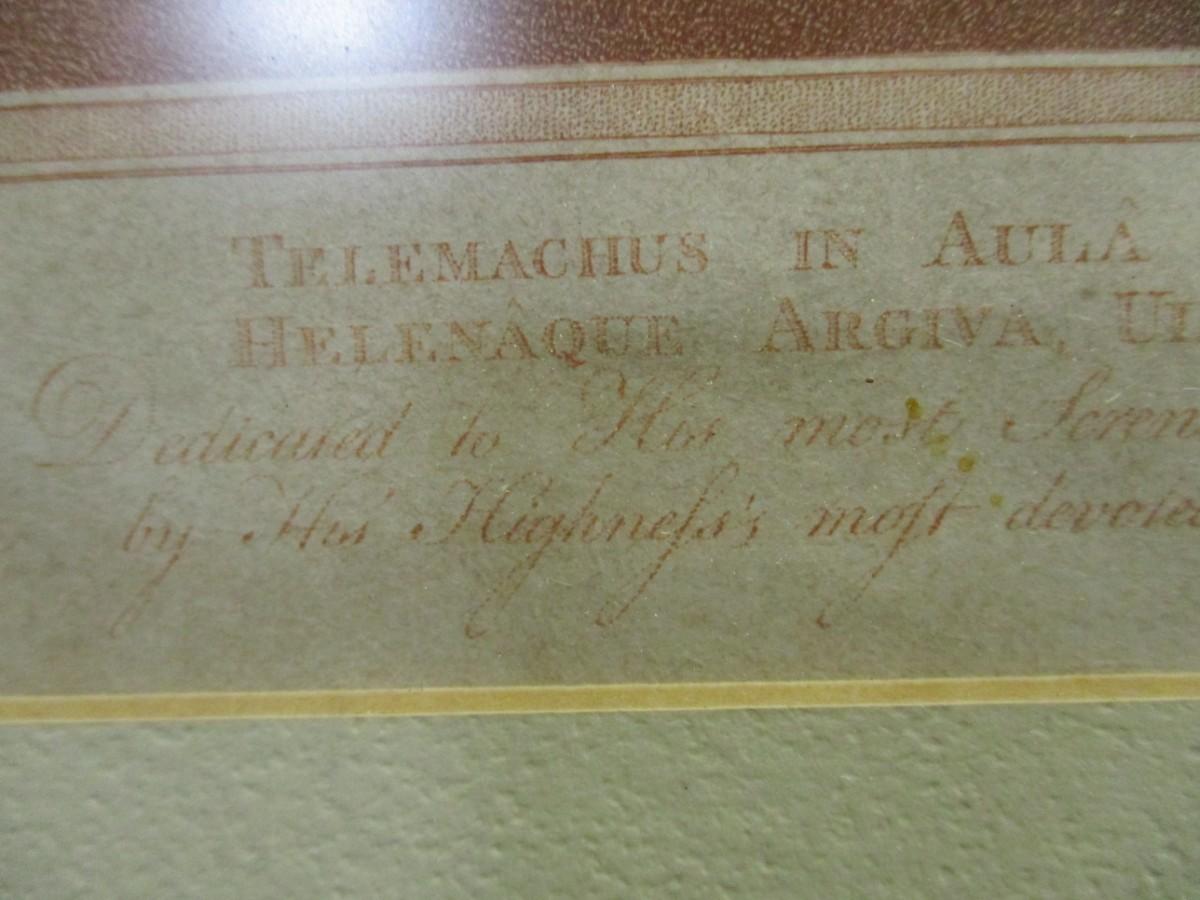 TELEMACHUS IN AULÂ
HELENÂQUE ARGIVA, UL
Dedicated to His most Seren
by His Highneſs's moſt devoted